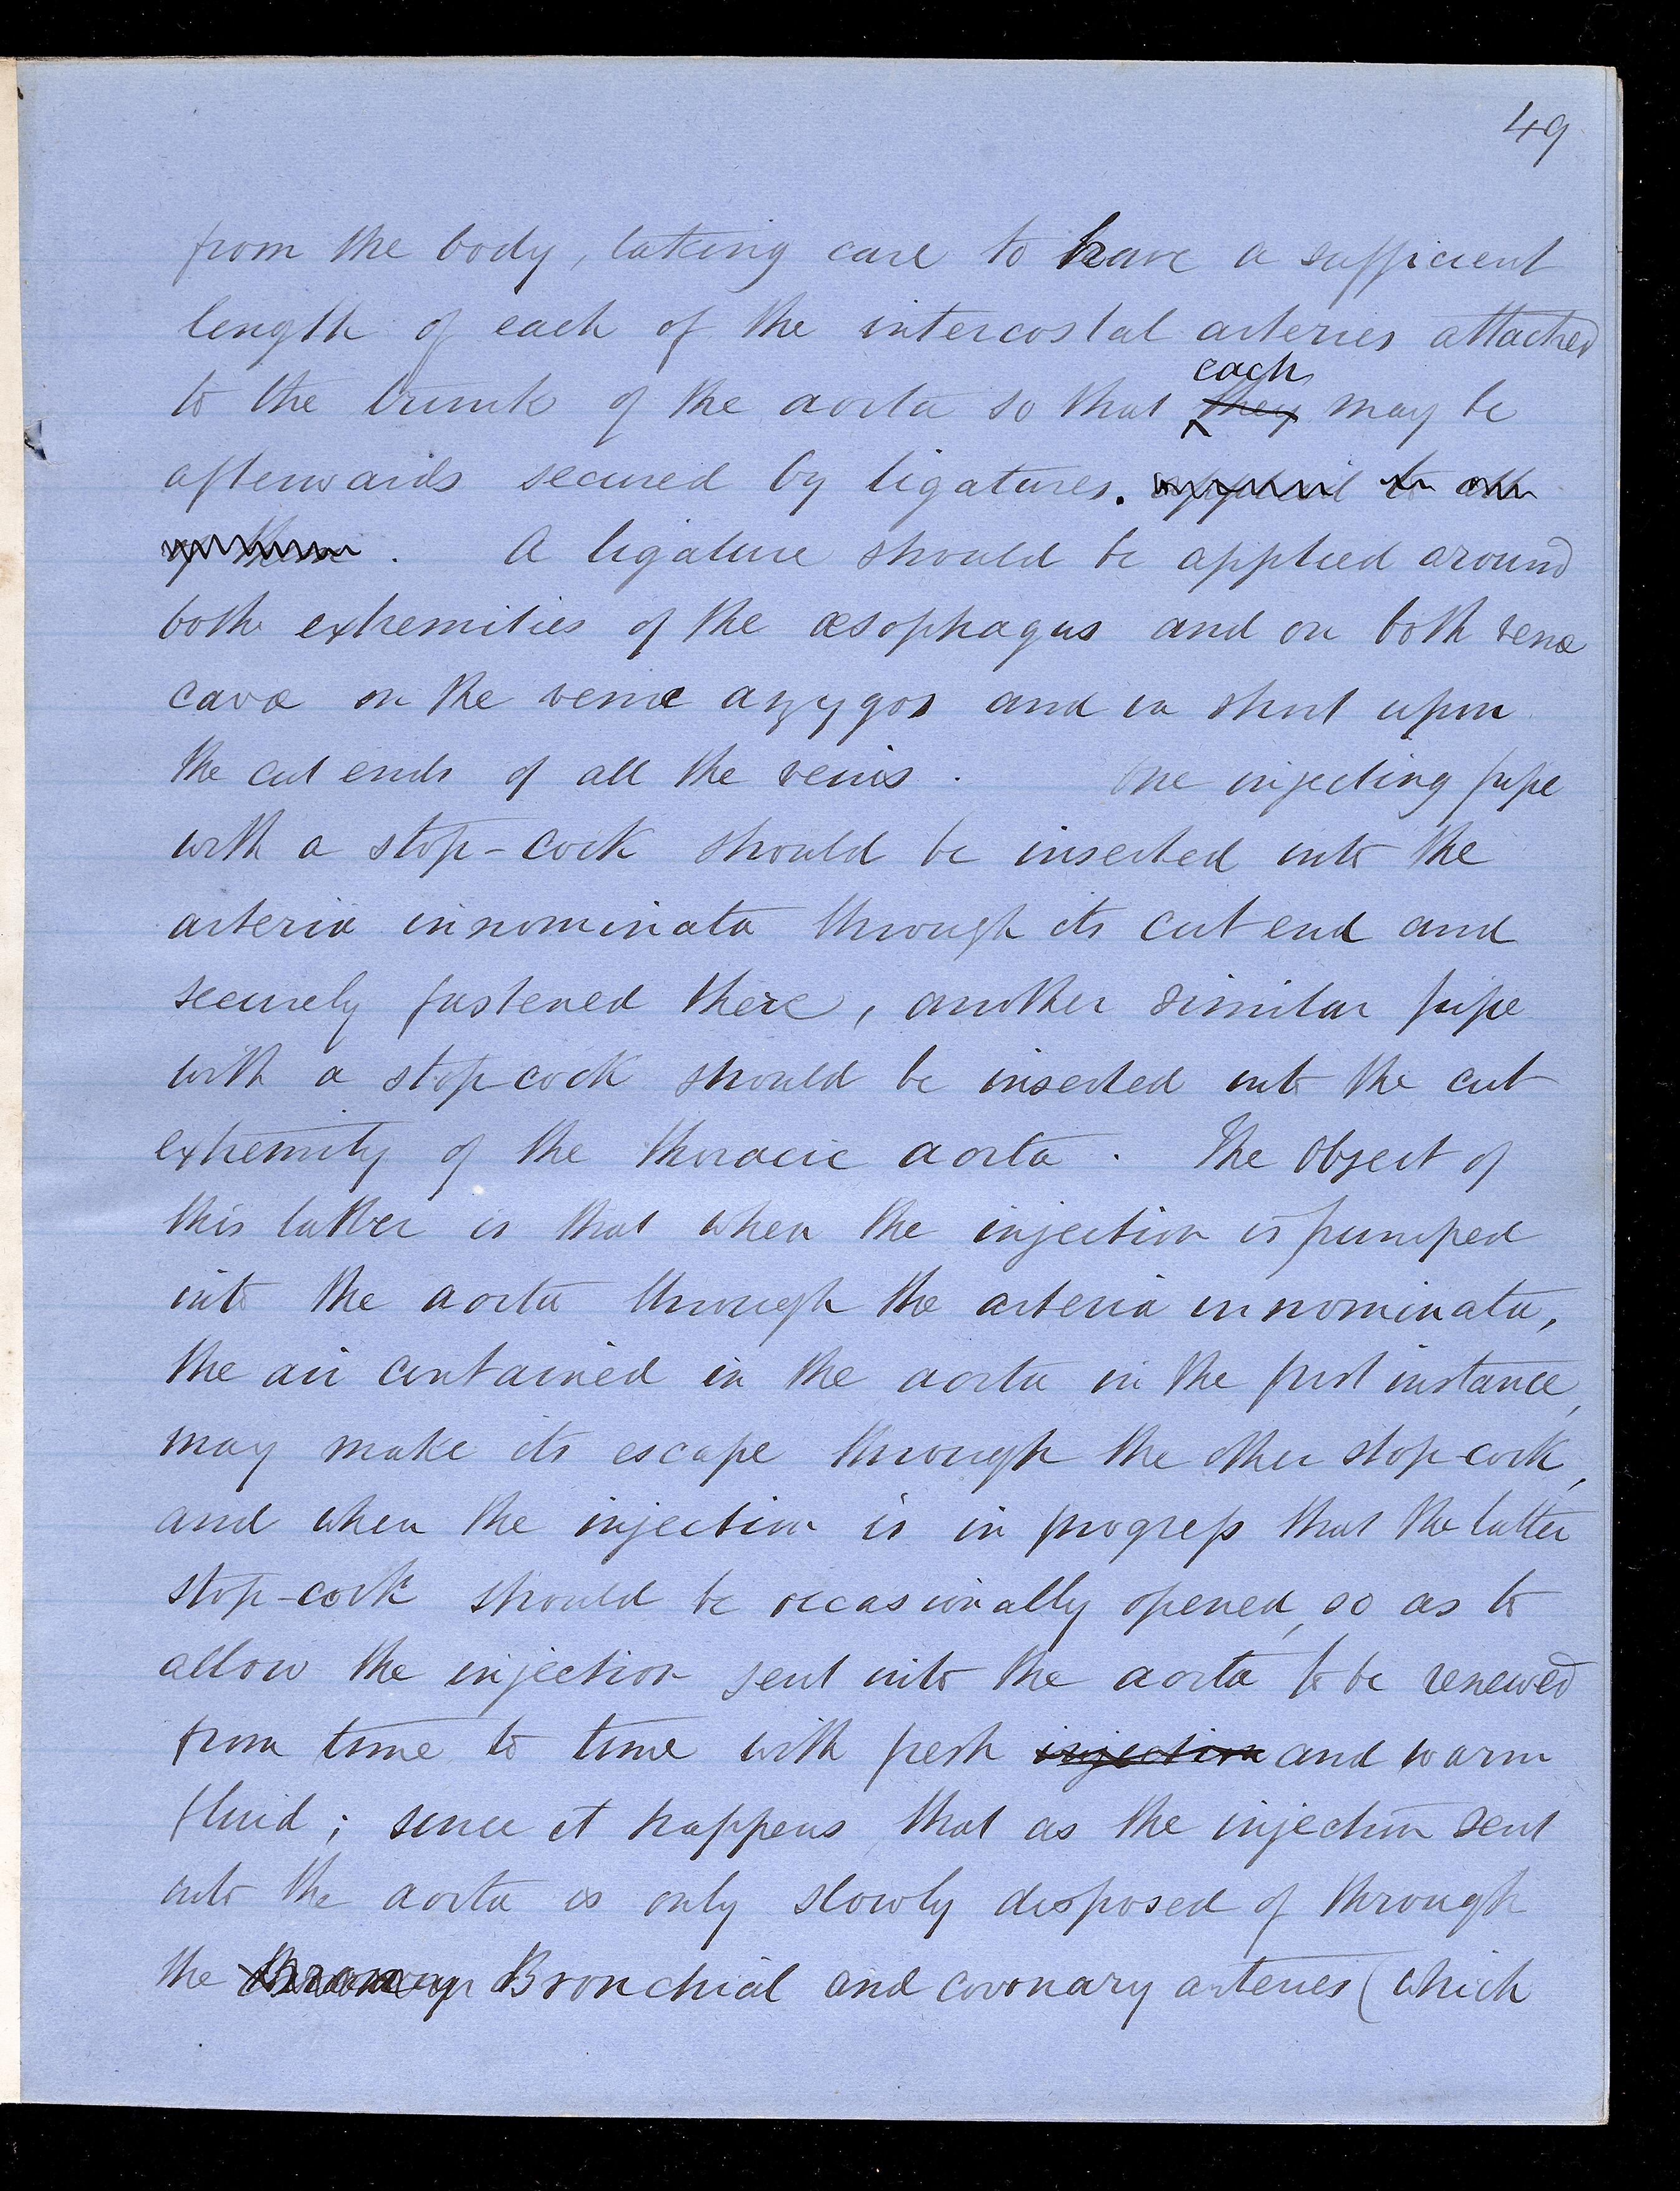 49
from the body, taking care to have a sufficient
length of each of the intercostal arteries attached
each
to the trunk of the aorta so that they may be
afterwards secured by ligatures. applied to all
of them. A ligature should be applied around
both extremities of the œsophagus and on both venæ
cavæ on the venæ azygos and in short upon
the cut ends of all the veins. One injecting pipe
with a stop-cock should be inserted into the
arteria innominata through its cut end and
securely fastened there, another similar pipe
with a stop cock should be inserted into the cut
extremity of the thoracic aorta. The object of
this latter is that when the injection is pumped
into the aorta through the arteria innominata,
the air contained in the aorta in the first instance,
may make its escape through the other stop-cock,
and when the injection is in progress that the latter
stop-cock should be occasionally opened, so as to
allow the injection sent into the aorta to be renewed
from time to time with fresh injection and warm
fluid; since it happens that as the injection sent
into the aorta is only slowly disposed of through
the Bronchial and coronary arteries (which